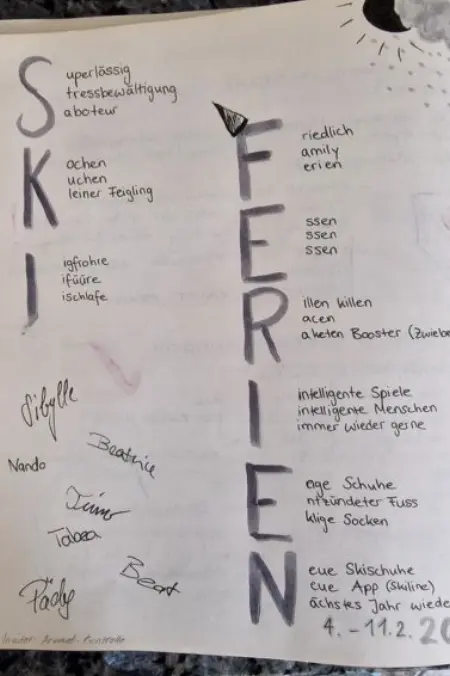 S
uperlössig
tressbewältigung
aboteur
K
achen
uchen
leiner Feigling
I
igfrohre
ifüüre
ischlafe
F
riedlich
amily
erien
E
ssen
ssen
ssen
R
illen killen
acen
aketen Booster (Zwiebe
I
intelligente Spiele
intelligente Menschen
immer wieder gerne
E
nge Schuhe
ntzündeter Fuss
klige Socken
N
eue Skischuhe
eue App (Skiline)
ächstes Jahr wiede
4. - 11.2. 20
Sibylle
Beatrice
Nando
Timo
Beat
Pädy